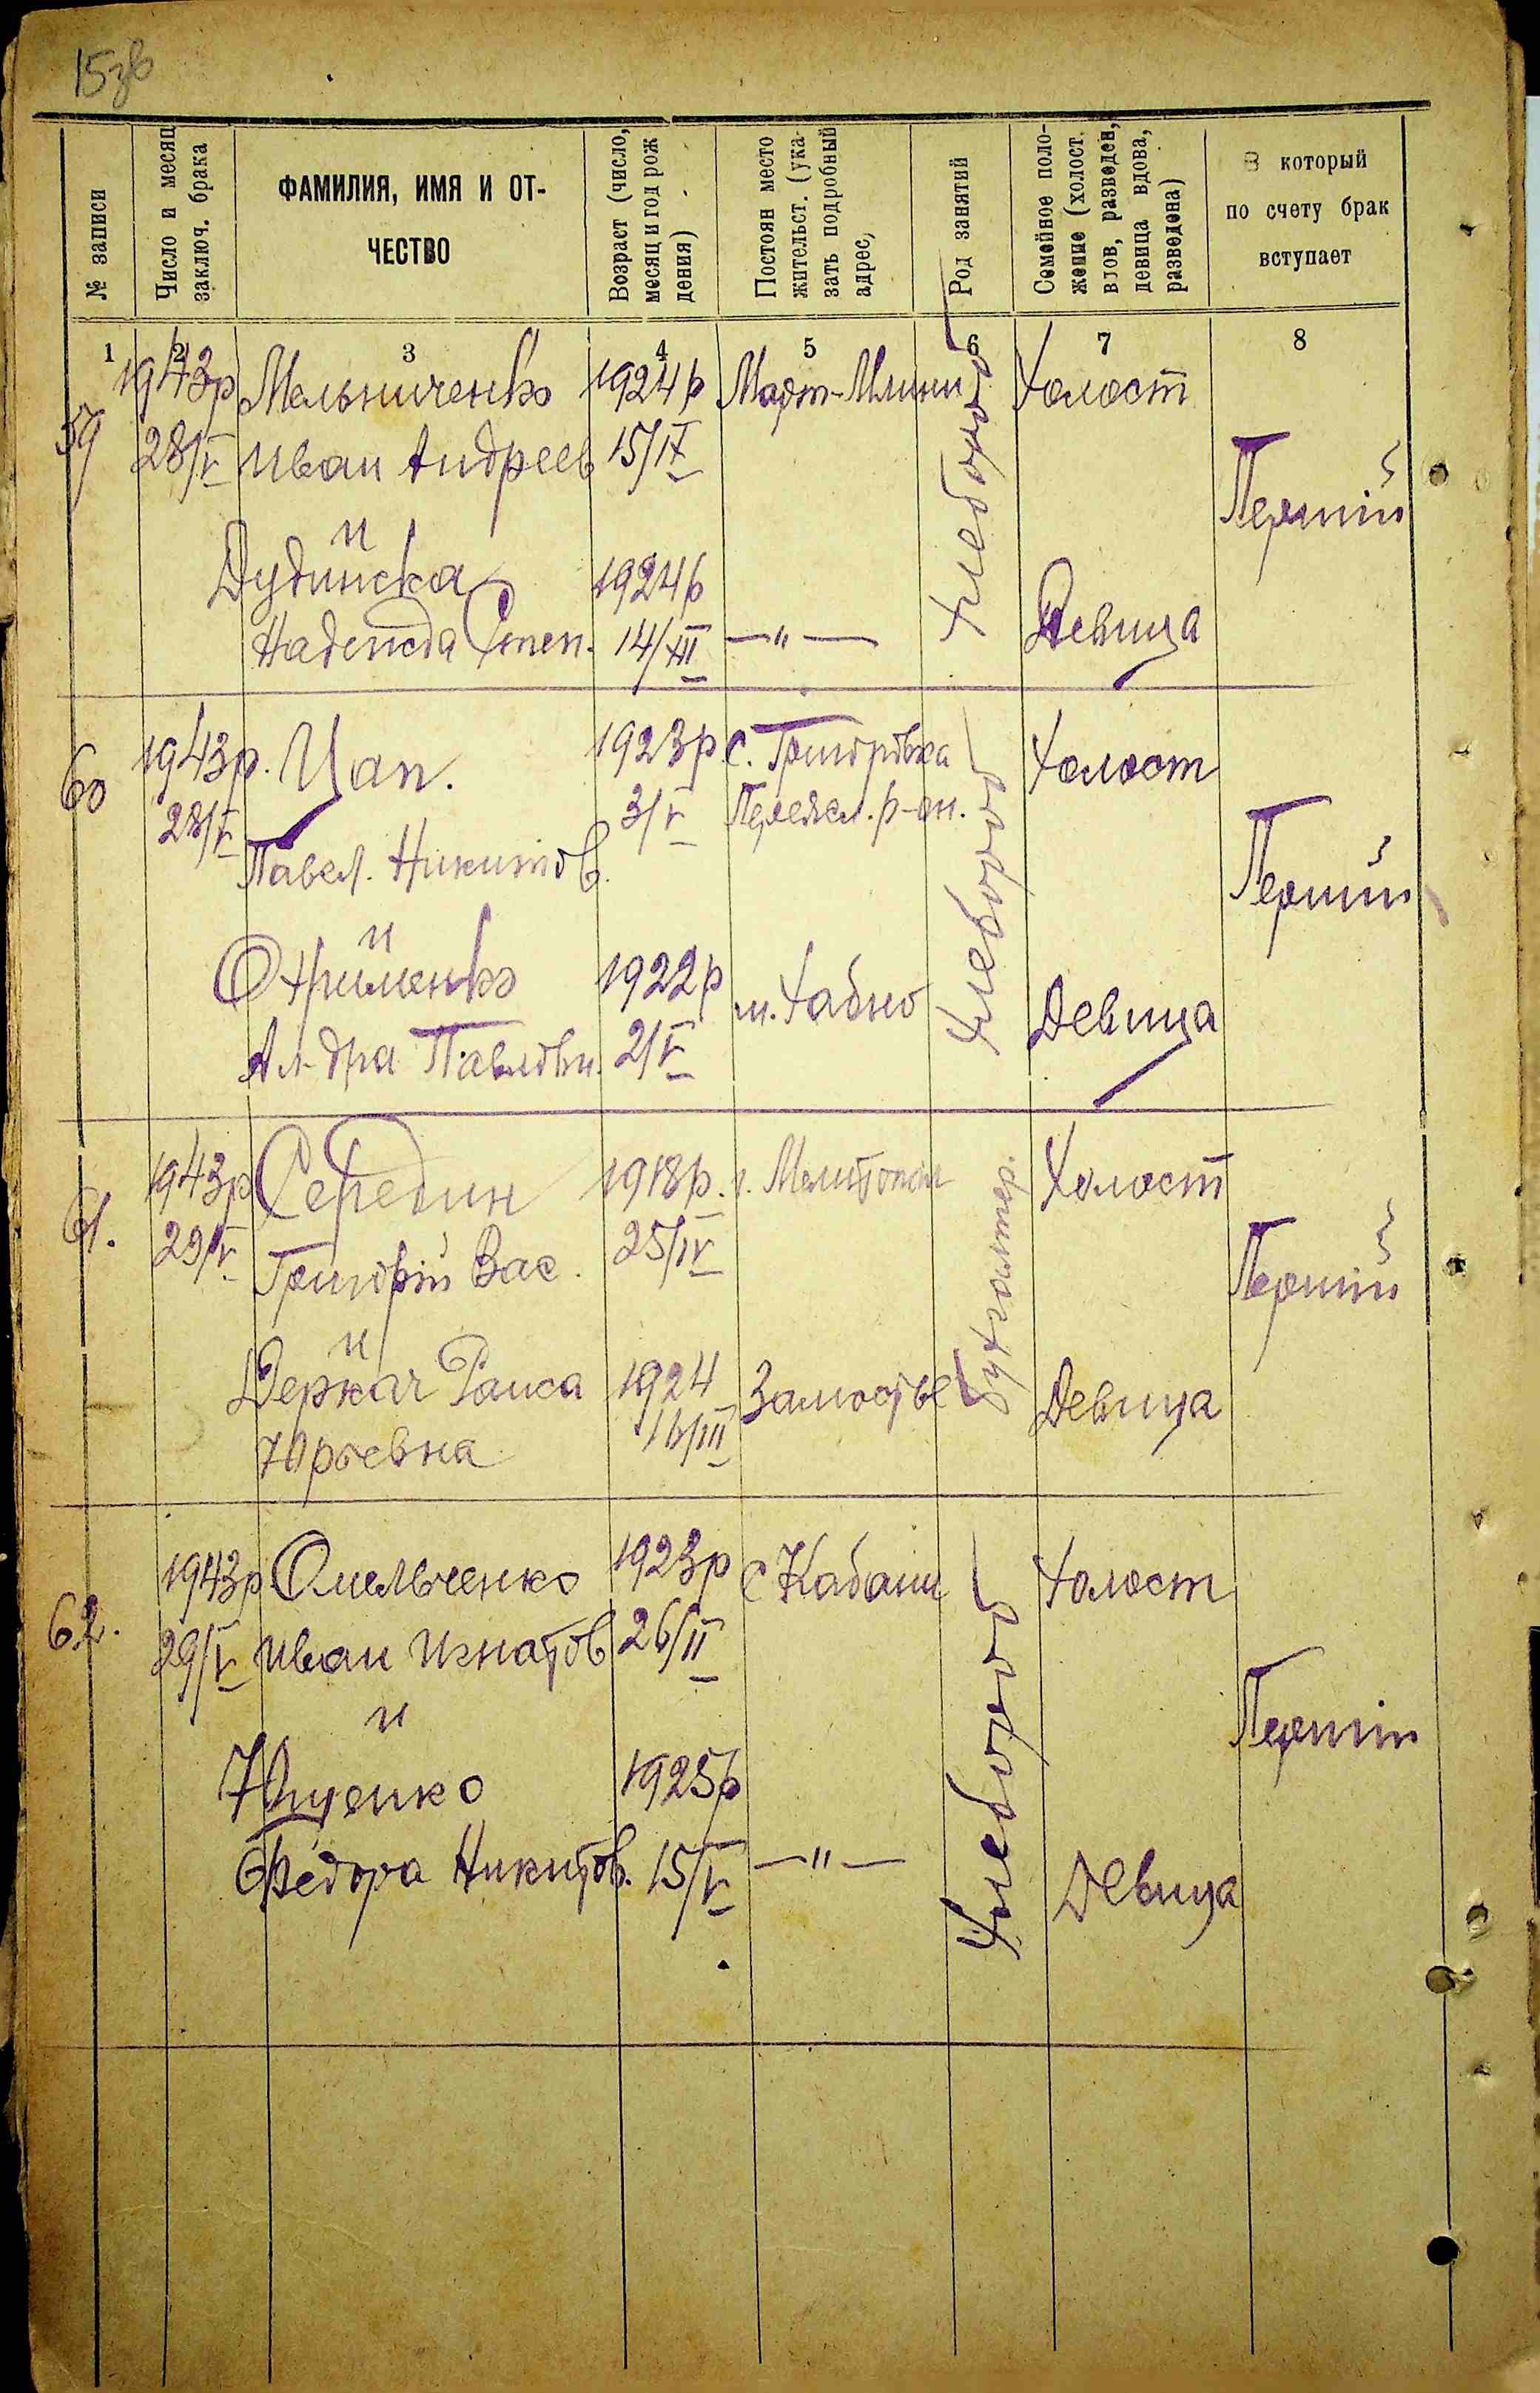 15зв
№ записи
Число и месяц
заключ. брака
ФАМИЛИЯ, ИМЯ И ОТ-
ЧЕСТВО
Возраст (число,
месяц и год рож
дения)
Постоян место
жительст. (ука-
зать подробный
адрес,
Род занятий
Семейное поло-
жение (холост.
вдов, разведен,
девица вдова,
разведена)
В который
по счету брак
вступает
1 2 3 4 5 6 7 8
59 1943р Мельниченко 1924р Март-Млини Хлебороб Холост
28/V Иван Андреев 15/IX Перший
и
Дудинска 1924р
Надежда Степ. 14/XII —"— Девица
60 1943р. Цап. 1923р с. Григоровка Хлебороб Холост
28/V 3/V Переясл. р-он.
Павел. Никитов. Перший
и
Охрименко 1922р м. Хабно Девица
Ал-дра Павловн. 2/V
61. 1943р Середин 1918р. г. Мелитополь Бухгалтер. Холост
29/V Григорій Вас. 25/IV Перший
и
Деркач Раиса 1924 Замостье Девица
Юрьевна 16/III
62. 1943р Омельченко 1923р с Кабани Хлебороб Холост
29/V Иван Игнатов 26/II
и Перший
Ющенко 1925р
Федора Никитов. 15/V —"— Девица